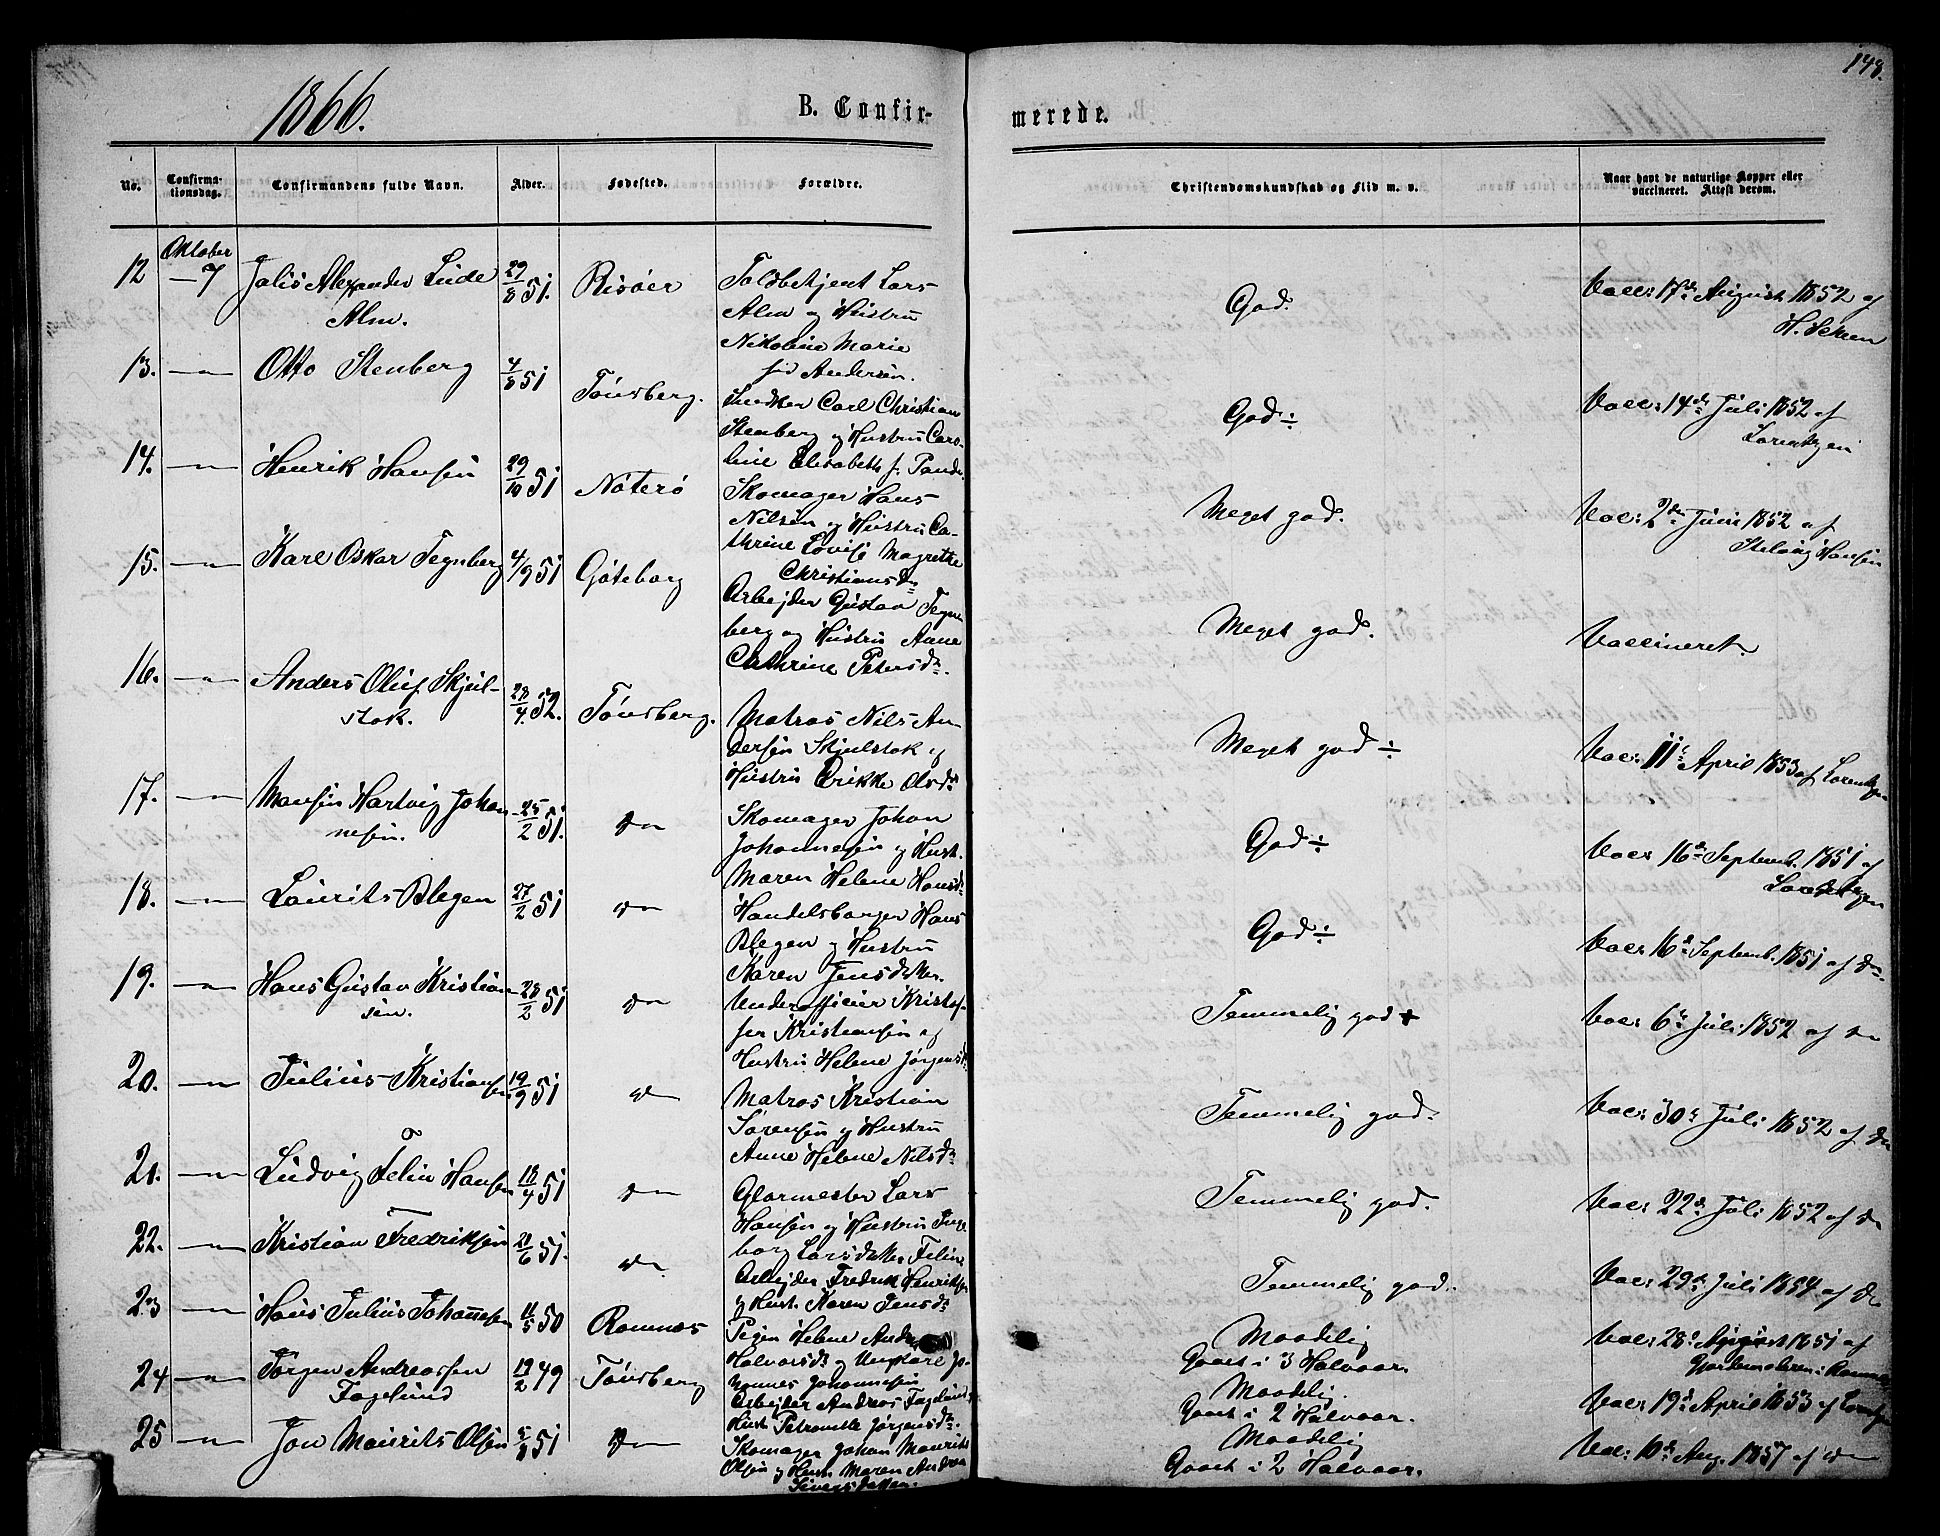 1866.
B. Confir-
merede.
148.
No.
Confirma-
tionsdag.
Confirmandens fulde Navn.
Alder.
Fødested.
Forældre.
Christendomskundskab og Flid m. v.
Naar havt de naturlige Kopper eller
vaccineret. Attest derom.
Oktober
12 — 7 Alexander Lude 29/8 51. Risøer Toldbetjent Lars God. Vacc: 17de August 1852 af
Alm. Alm og Hustru
Nikoline Marie
Andersen.
13. — " — Otto Stenberg 4/8 51 Tønsberg. Carl Christian God ÷ Vacc: 14de Juli 1852 af
Stenberg og Hustru Caro- Lorentzen
line Elisabeth f.
14. — " — Henrik Hansen 29/10 51 Nøterø Skomager Hans Meget god. Vacc: 2den Juni 1852 af
Nilsen og Hustru Ca- Hansen
thrine Lovise Magrethe
Christiansdr
15. — " — Karl Oskar Tegnberg 4/9 51 Gøteborg Arbejder Gustav Tegn- Meget god. Vaccineret.
berg og Hustru Anne
Cathrine Petersdr.
16. — " — Anders Oluf Skjul- 28/4 52. Tønsberg. Matros Nils An- Meget god ÷ Vacc: 11te April 1853 af Lorentzen
stok. dersen Skjulstok og
Hustru Erikke Olsdr
17. — " — Hartvig Johan- 25/2 51. do Skomager Johan God ÷ Vacc 16de Septemb. 1851 af
nesen. Johannesen og Hust. Lorentzen
Maren Helene Hansdr
18. — " — Laurits Blegen 27/2 51 do Handelsborger Hans God ÷ Vacc 16de Septemb. 1851 af do
Blegen og Hustru
Karen
19. — " — Hans Gustav Kristian- 28/2 51 do Underofficier Kristof- Temmelig god + Vacc: 6te Juli 1852 af do
sen. fer Kristiansen og
Hustru Helene Jørgensdr
20. — " — Julius Kristiansen 19/9 51 do Matros Kristian Temmelig god. Vacc: 30te Juli 1852 af do
Sørensen og Hustru
Anne Helene Nilsdr
21. — " — Ludvig Felin Hansen 18/4 51 do Glarmester Lars Temmelig god. Vacc: 22de Juli 1852 af do
Hansen og Hustru Inge-
borg Felin
22. — " — Kristian Fredriksen 21/6 51. do Arbejder Fredrik Henriksen Temmelig god. Vacc: 29de Juli 1854 af do
og Hust. Karen Jensdr
23 — " — Hans Julius Johannesen 11/5 50 Ramnæs Pigen Helene Andrea Maadelig Vacc: 28de August 1851 af
Halvorsdr og Ungkarl Jo- Gaaet i 3 Halvaar. Gjordemoderen i Ramnæs
hannes Johannesen
24 — " — Jørgen Andreassen 19/2 49 Tønsberg Arbejder Andreas Fagelund Maadelig. Vacc: 19de April 1853 af Lorentzen
Fagelund Hust. Petronelle Jørgensdr. Gaaet i 2 Halvaar.
25 — " — Jon Maurits Olsen 51 do Skomager Johan Maurits Maadelig Vac: 10de Aug. 1857 af do
Olsen og Hust. Maren Andrea Gaaet i 2 Halvaar.